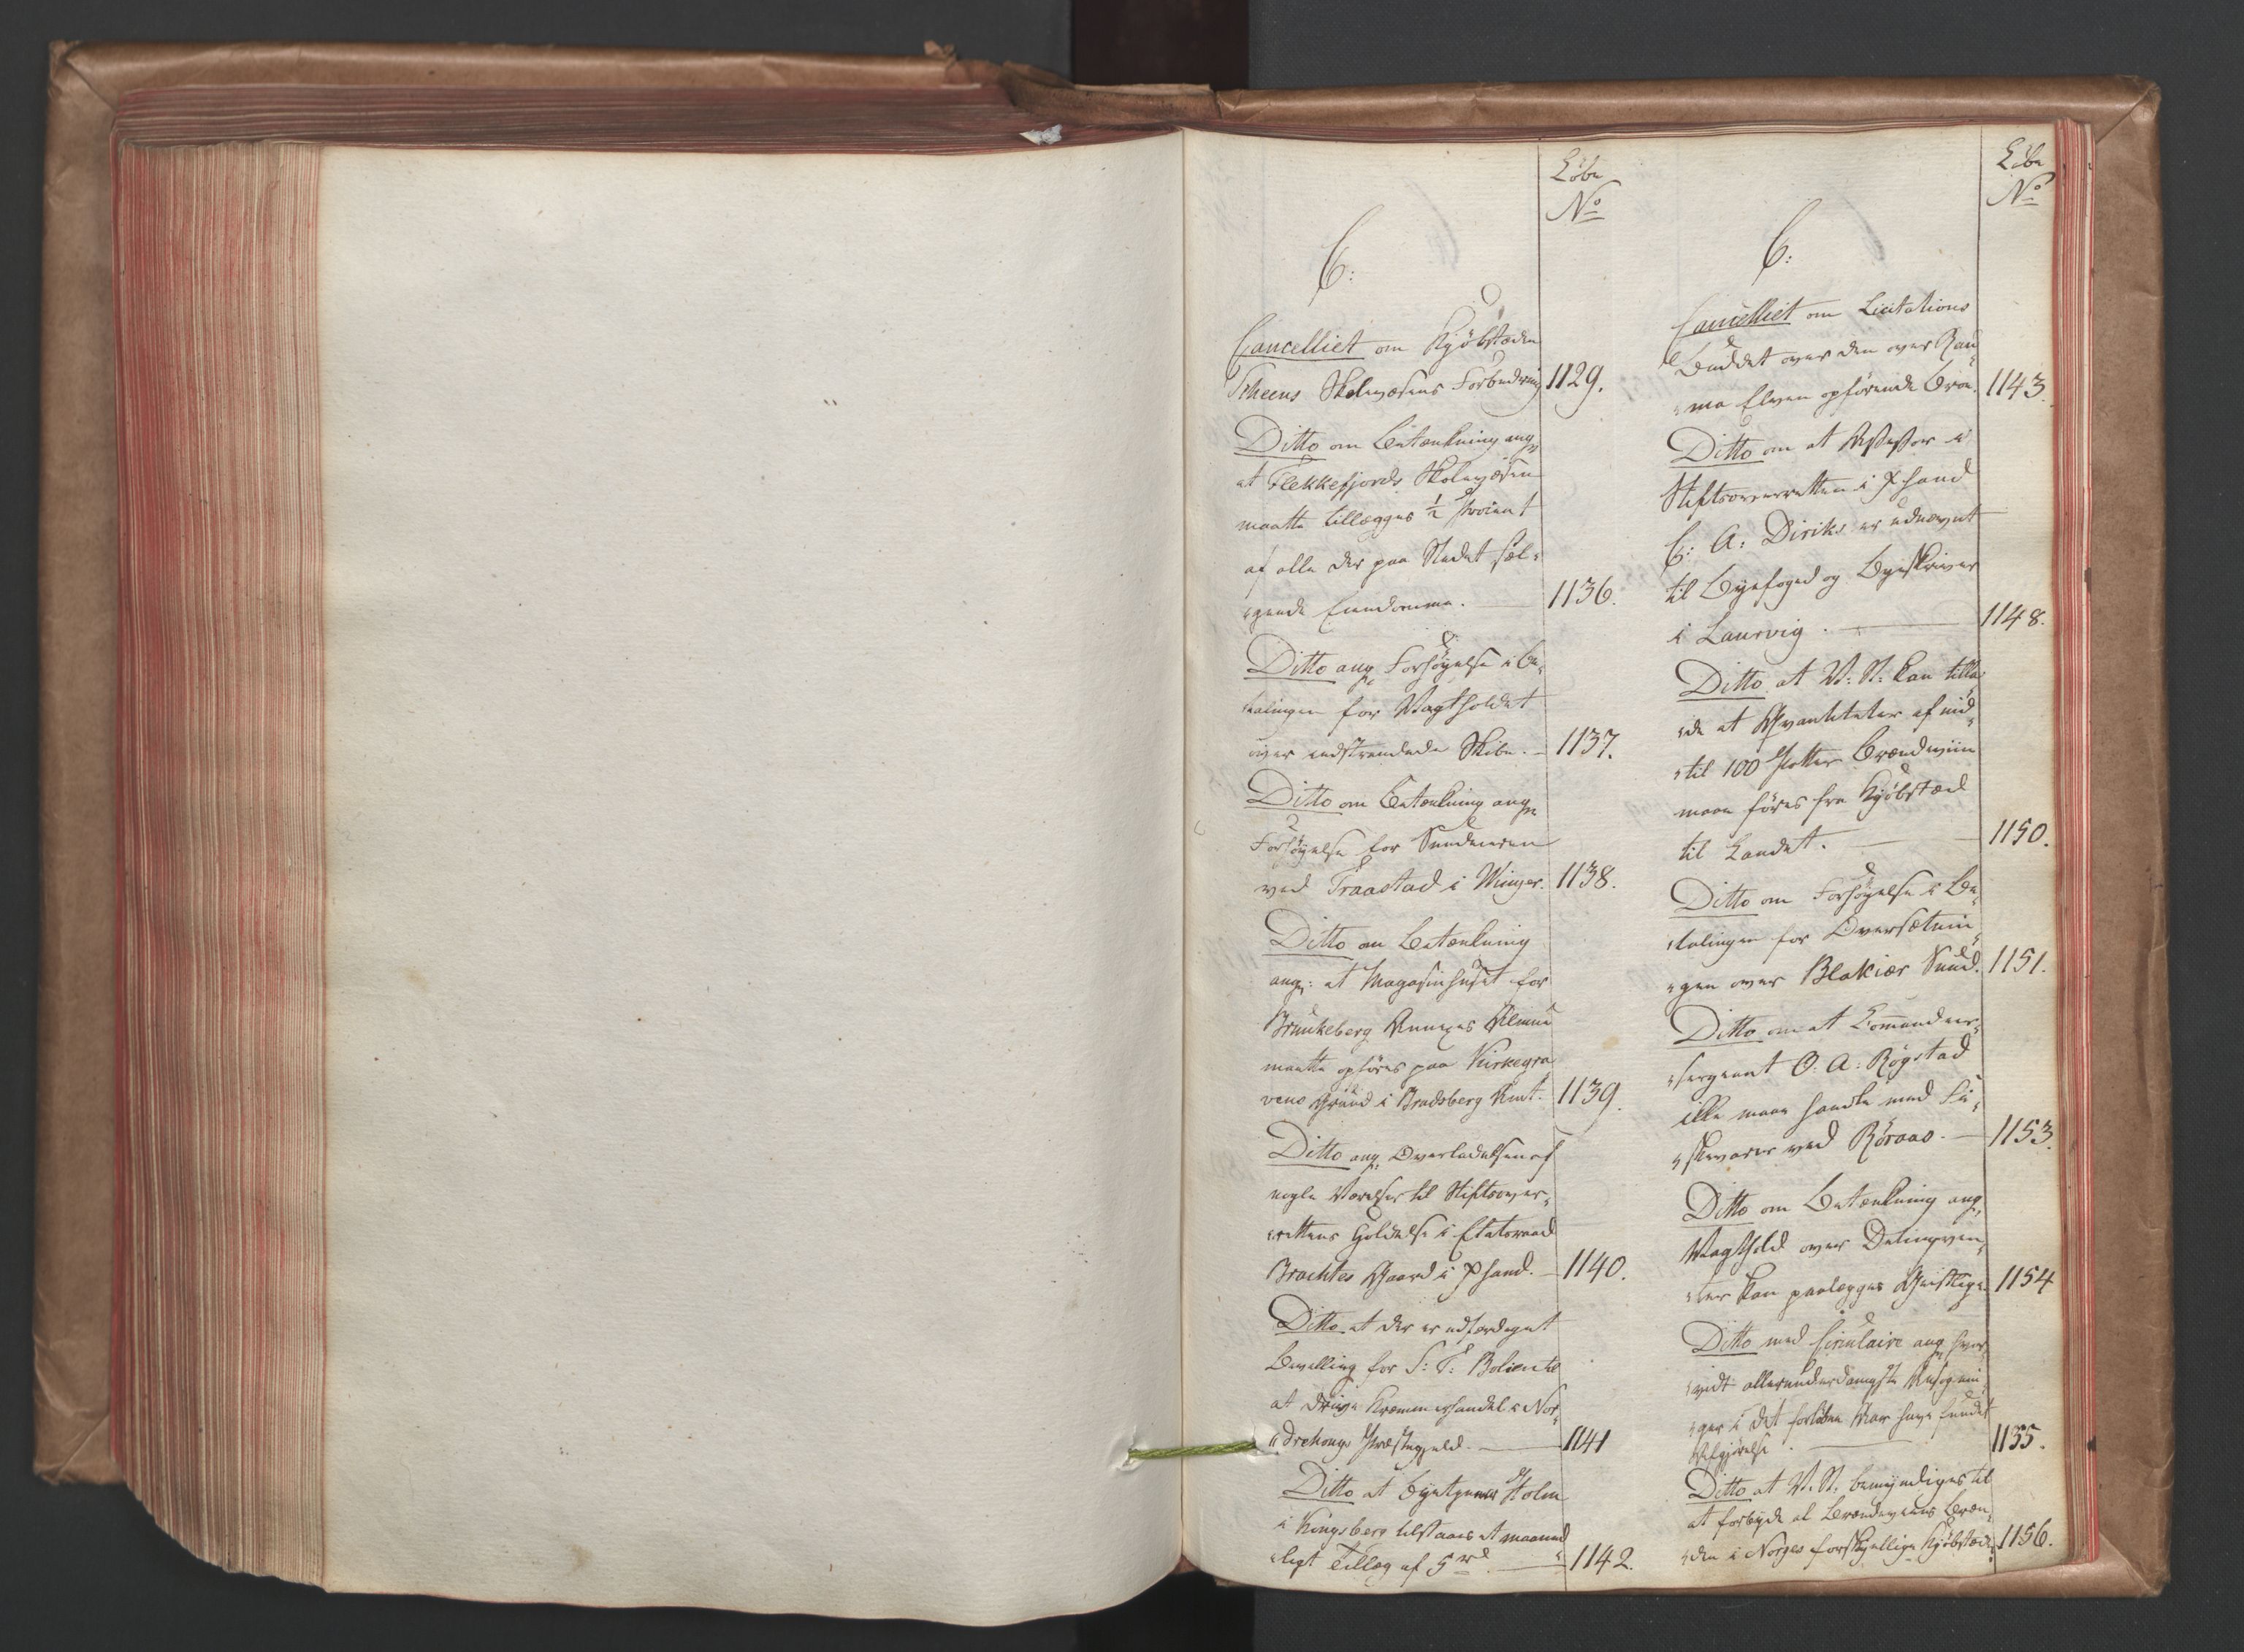 Löbe
No
C:
Cancelliet om Kjöbstæden
Scheens Skolevæsens Forbedring 1129.
Ditto om Betænkning ang:
at Flekkefjords Skolevæsen
maatte tillægges ½ Procent
af alle der paa Stedet sæl-
gende Eiendomme. 1136.
Ditto ang: Forhöyelse i Be-
talingen for Vagtholdet
over indstrandede Skibe. 1137.
Ditto om Betænkning ang:
Forhöyelse for Sundmanden
ved Traastad i Winger. 1138.
Ditto om Betænkning
ang: at Magasinhuset for
Brunkeberg Annexes Almue
maatte opföres paa Kirkegra
vens Grund i Bradsberg Amt. 1139.
Ditto ang: Overladelsen af
nogle Værelser til Stiftsover-
rettens Holdelse i Etatsraad
Brochtes Gaard i Xsand. 1140.
Ditto at der er udfærdiget
Bevilling for S: T: Bolien til
at drive Kræmmerhandel i Nor-
drehougs Præstegjeld. 1141
Ditto at Byetjener Holm
i Kongsberg tilstaaes et maaned
ligt Tillæg af 5 rd 1142.
Löbe
No
C:
Cancelliet om Licitations
Buddet over den over Rau
ma Elven opförende Broe. 1143.
Ditto om at Assessor i
Stiftsoverretten i Xsand
C: A: Diriks er udnævnt
til Byefoged og Byeskriver
i Laurvig. 1148.
Ditto at V: St: kan tilla-
de at Qvantiteter af ind-
til 100 Potter Brændeviin
maae föres fra Kjöbstæd
til Landet. 1150.
Ditto om Forhöyelse i Be-
talingen for Oversætnin-
gen over Blakiær Sund. 1151.
Ditto om at Commandeer-
sergeant O: A: Rögstad
ikke maae handle med Fi-
skevarer ved Röraas. 1153.
Ditto om Betænkning ang:
Vagthold over Delinqven-
ter kan paalægges Geistlige 1154
Ditto med Circulaire ang: hvor-
vidt allerunderdanigste Ansögnin-
ger i det forlöbne Aar have fundet
Afgjörelse. 1155.
Ditto at V. St. bemyndiges til
at forbyde al Brændeviins Bræn-
den i Norges forskjellige Kjöbstæder 1156.